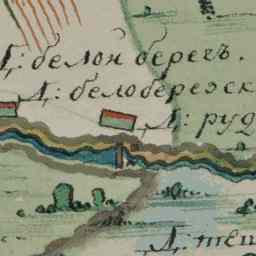 Д: белой берегъ.
Д: белоберезск
Д: руд
Д: тещ